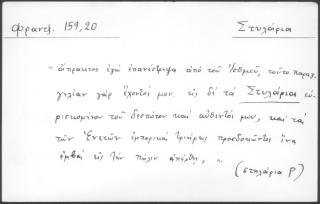 Φραντζ. 159,20 Στυλάρια
"ἄπρακτος ἐγὼ ἐπανέστρεψα ἀπὸ τοῦ Ἰσθμοῦ, τοῦτο παραγ-
γελίαν γὰρ ἔχοντός μου. εἰς δὲ τὰ Στυλάρια εὑ-
ρισκομένου τοῦ δεσπότου καὶ αὐθεντός μου, καὶ τὰς
τῶν Ἐνετῶν ἐμπορικὰς τριήρεις προσδοκῶντος ἵνα
ἐμβὰς εἰς τὴν πόλιν ἀπέλθῃ, "
(στηλάρια P)